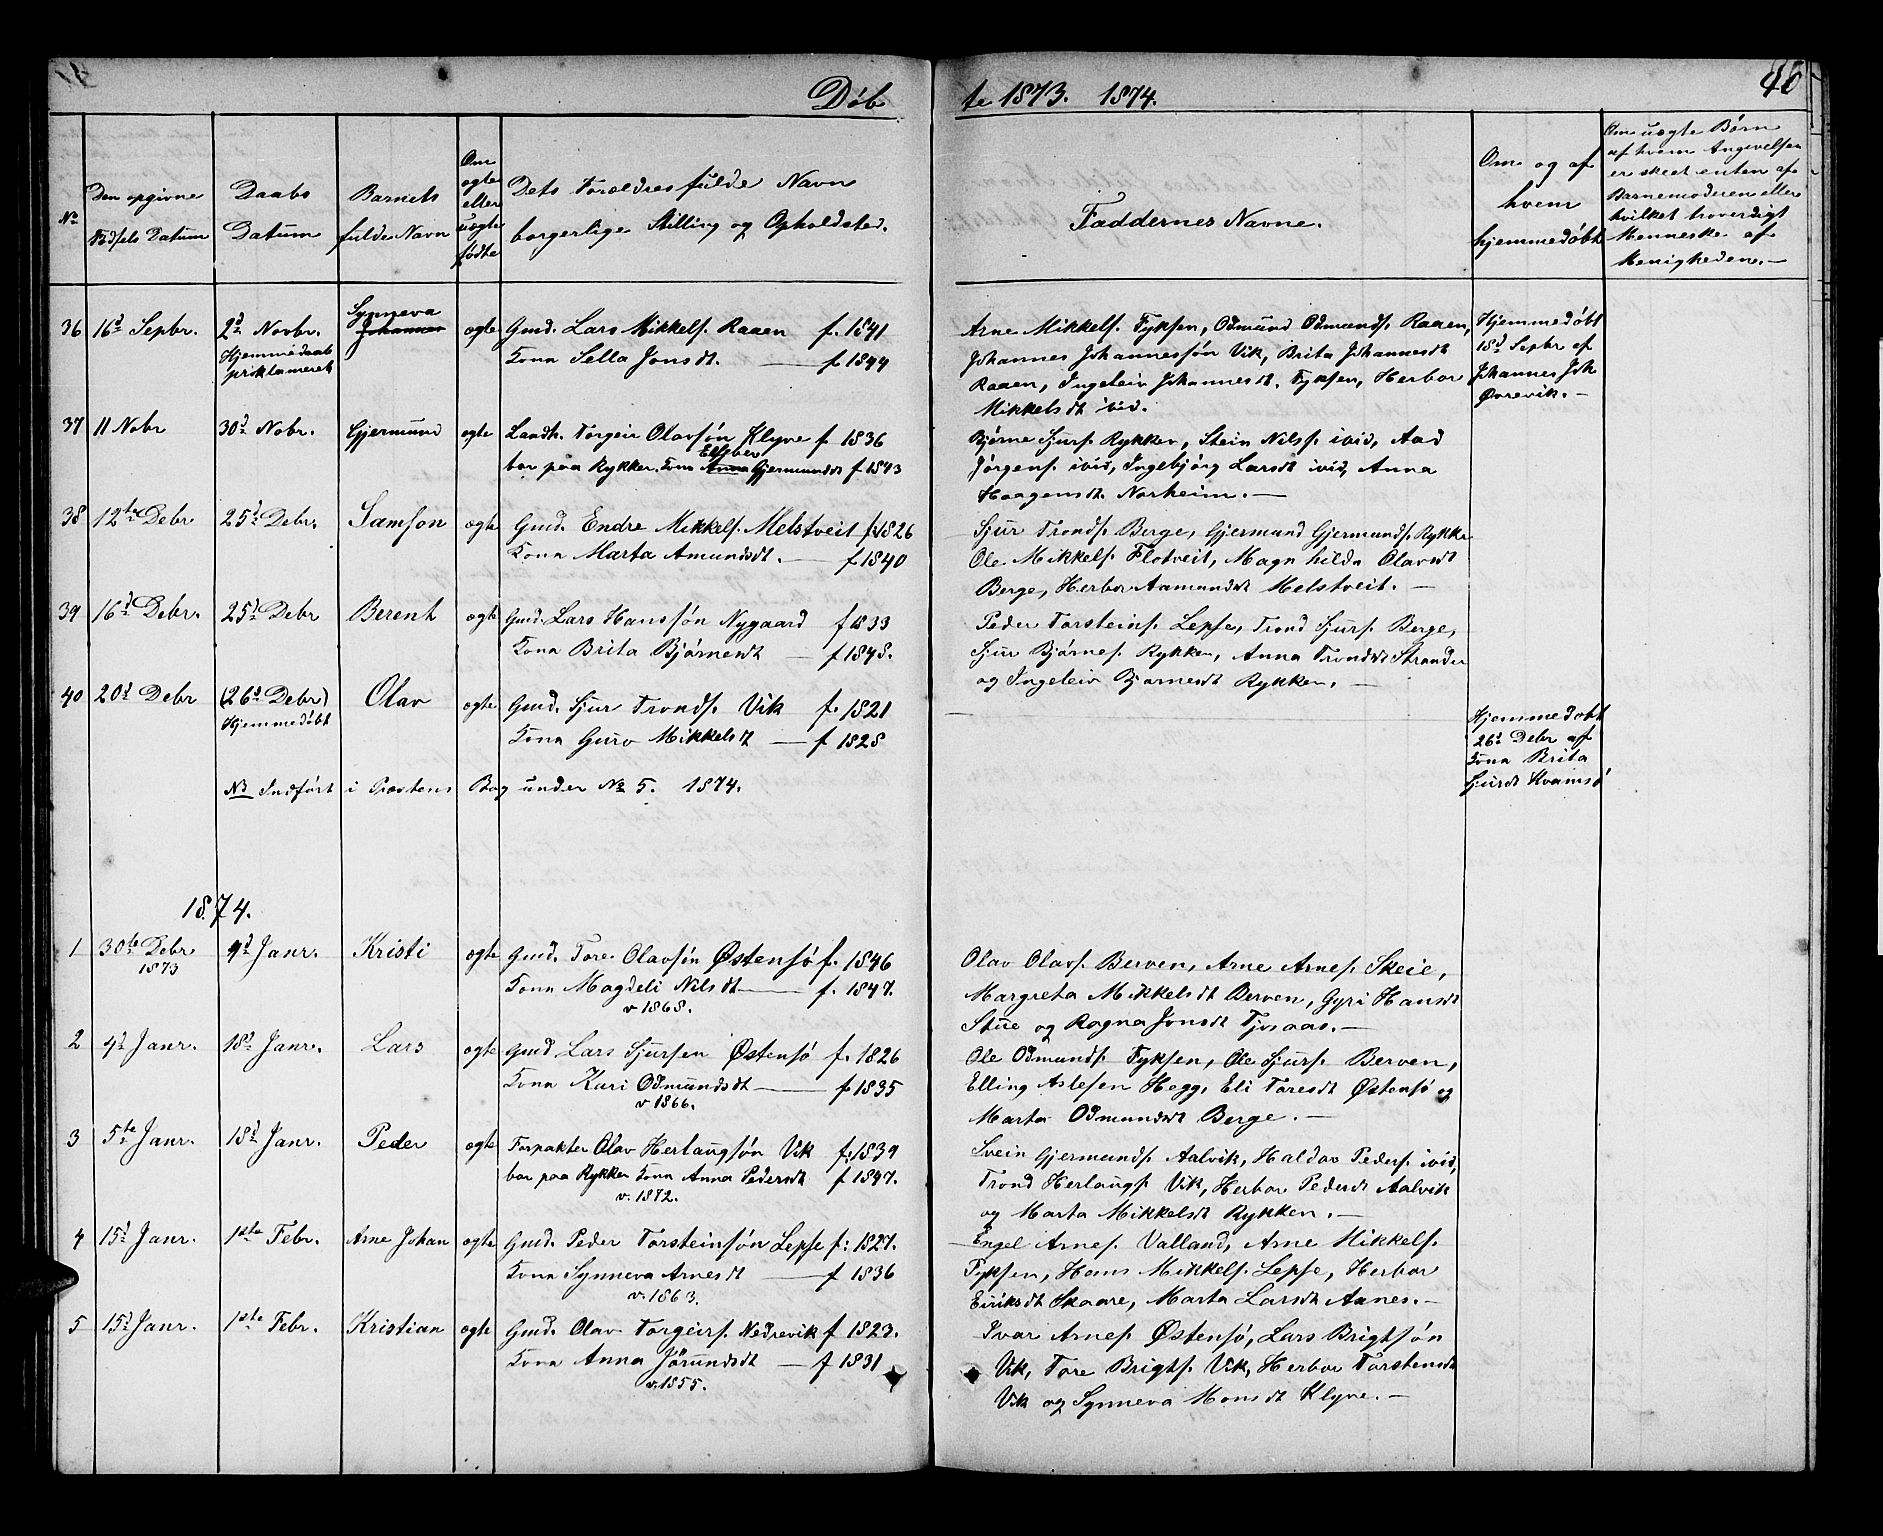 Døb
te 1873. 1874.
46
No
Den opgivne Fødsels Datum
Daabs Datum
Barnets fulde Navn
Om ægte eller uægte fødte
Dets Forældres fulde Navn borgerlige Stilling og Opholdsted.
Faddernes Navne.
Om og af hvem hjemmedøbt
Om uægte Børn af hvem Angivelsen er skeet enten af Barnemoderen eller hvilket troverdigt Menneske af Menigheden.—
36 16d Sepbr. 2d Novbr. Hjemmedaab proklameret Synneva Johannes ægte Gmd. Lars Mikkels. Raaen f. 1841
Kona Sella Jonsdt. — f 1844
Arne Mikkels. Fyksen, Odmund Odmunds. Raaen,
Johannes Johannessøn Vik, Brita Johannesdt
Raaen, Ingeleiv Johannesdt. Fyksen, Herbor
Mikkelsdt ivid.
Hjemmedøbt
18d Sepbr af
Johannes Joh
Øvrevik.—
37 11 Nobr 30d Nobr. Gjermund ægte Landh. Torgeir Olavsøn Klyve f 1836
bor paa Rykken. Kona Anna Elsber Gjermundsdt f 1843
Bjørne Sjurs. Rykken, Stein Nilss. ivid, Aad
Jørgens. ivid, Ingebjørg Larsdt ivid, Anna
Haagensdt. Norheim.—
38 12te Debr 25d Debr. Samson ægte Gmd. Endre Mikkels. Melstveit f. 1826
Kona Marta Amundsdt. — f 1840
Sjur Tronds. Berge, Gjermund Gjermunds. Rykke
Ole Mikkels. Flotveit, Magnhilda Olavsdt
Berge, Herbor Aamundsdt Melstveit.—
39 16d Debr. 25d Debr Berent ægte Gmd. Lars Hanssøn Nygaard f 1833
Kona Brita Bjørnesdt — f 1845.
Peder Torsteins. Lepse, Trond Sjurs. Berge,
Sjur Bjørnes. Rykken, Anna Trondsdt Strander
og Ingeleiv Bjørnesdt Rykken.—
40 20d Debr (26d Debr) Hjemmedøbt Olav ægte Gmd. Sjur Tronds. Vik f. 1821
Kona Guro Mikkelsdt — f 1828
Hjemmedøbt
26d Debr af
Kona Brita
Sjursdt Kvamsø
NB Indført i Præstens Bog under No 5. 1874.
1874.
1 30te Debr 1873 4d Janr. Kristi ægte Gmd. Tore Olavsøn Østensø f. 1846
Kona Magdeli Nilsdt — f. 1847.
v 1868.
Olav Olavs. Berven, Arne Arnes. Skeie,
Margreta Mikkelsdt Berven, Gyri Hansdt
Stue og Ragna Jonsdt Tjosaas.—
2 4d Janr. 18d Janr. Lars ægte Gmd Lars Sjursen Østensø f. 1826
Kona Kari Odmundsdt — f 1835
v 1866.
Ole Odmunds. Fyksen, Ole Sjurs. Berven,
Elling Aslesen Hegg, Eli Toresdt Østensø og
Marta Odmundsdt Berge.—
3 5te Janr. 18d Janr. Peder ægte Forpakter Olav Herlaugsøn Vik f. 1839
bor paa Rykken Kona Anna Pedersdt f 1847.
v. 1872.
Svein Gjermunds. Aalvik, Haldor Peders. ivid,
Trond Herlaugs. Vik, Herbor Pedersdt Aalvik
og Marta Mikkelsdt Rykken.—
4 15d Janr. 1ste Febr. Arne Johan ægte Gmd. Peder Torsteinsøn Lepse f: 1827.
Kona Synneva Arnesdt — f 1836
v. 1863.
Engel Arnes. Valland, Arne Mikkels.
Fyksen, Hans Mikkels. Lepse, Herbor
Eiriksdt Skaare, Marta Larsdt Aanes.—
5 15d Janr. 1ste Febr. Kristian ægte Gmd. Olav Torgeirs. Nedrevik f 1823.
Kona Anna Jörundsdt — f 1831
v. 1855.
Ivar Arnes. Østensø, Lars Brigtsøn
Vik, Tore Brigts. Vik, Herbor Torstensdt
Vik og Synneva Monsdt Klyve.—